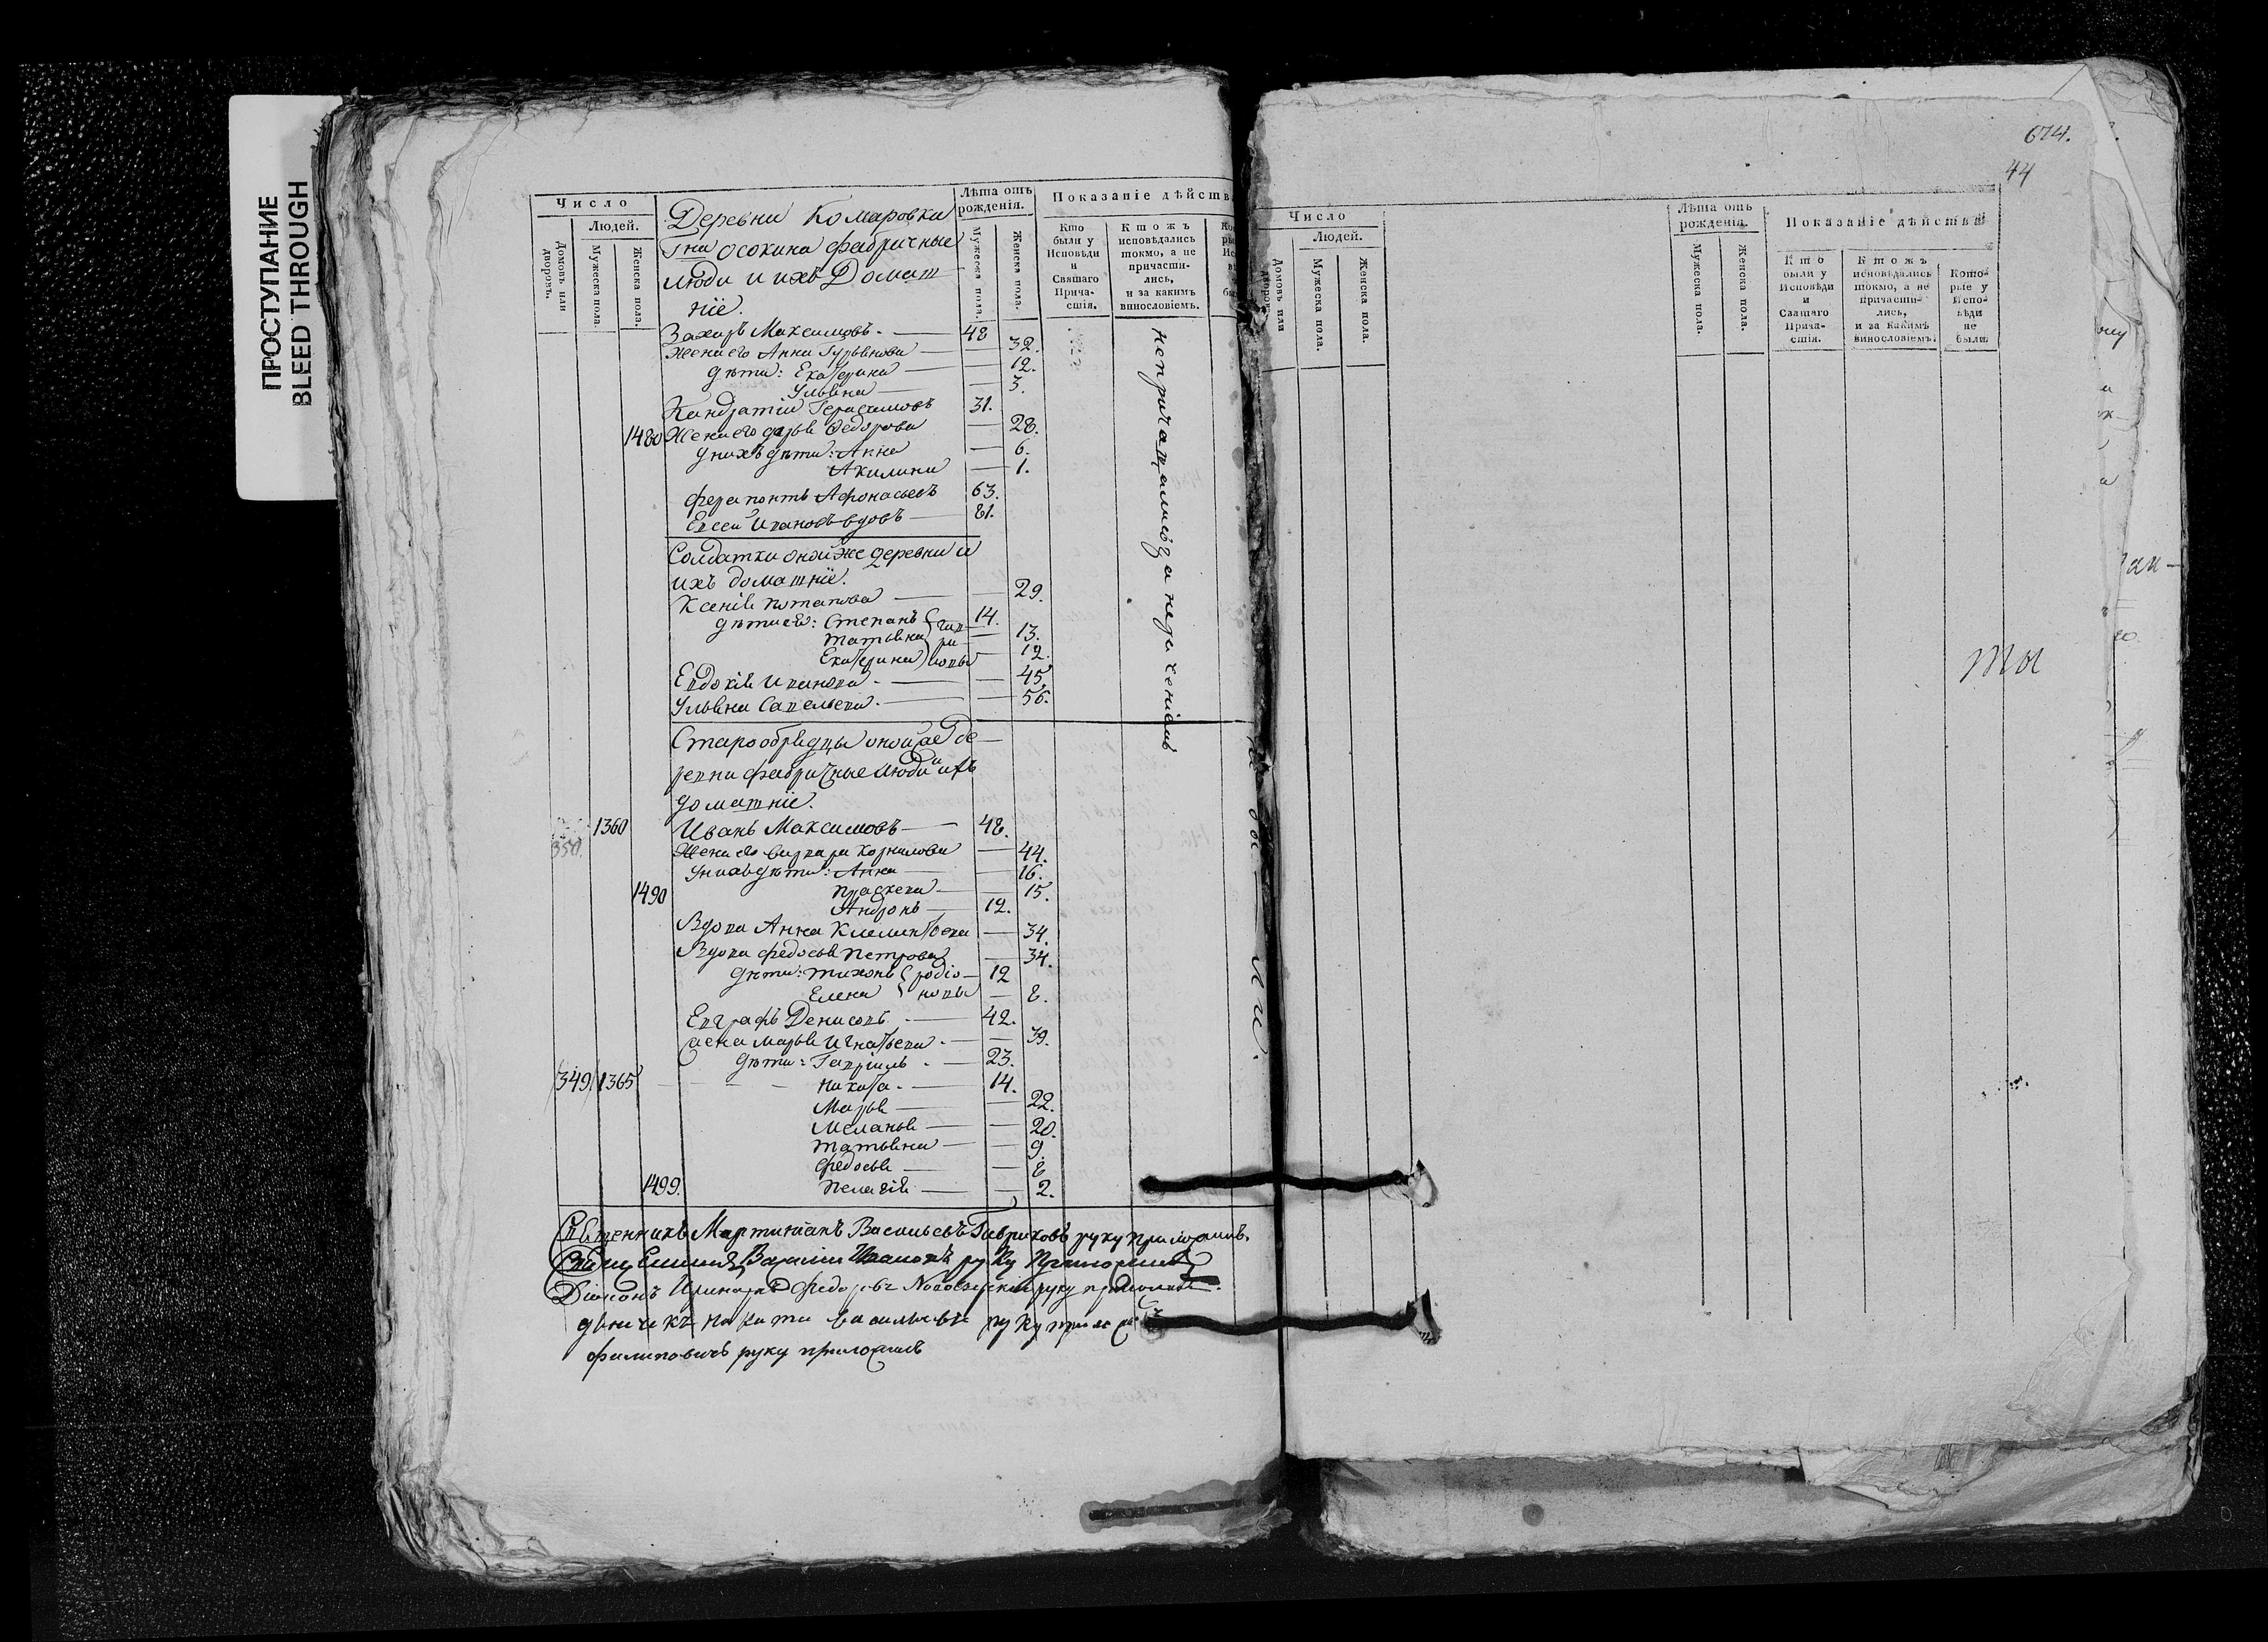 ПРОСТУПАНИЕ
BLEED THROUGH
Число
Людей.
Домовъ или дворовъ.
Мужеска пола.
Женска пола.
Лѣта отъ рожденія.
Мужеска пола.
Женска пола.
Показаніе дѣйств
Кто были у Исповѣди и Святаго Прича-стія.
Ктожъ исповѣдались токмо, а не причасти-лись, и за какимъ винословіемъ.
Деревни Комаровки
Гна осокина фабричные
люди и ихъ Домаш
ніе.
Захаръ Максимовъ. 48
Жена его Анна Гурьянова 32.
дѣти: Екатерина 12.
Ульяна 3.
Кандратій Герасимовъ 31.
1480 Жена его дарья Федорова 28.
у нихъ дѣти: Анна 6.
Акилина 1.
Ферапонтъ Афонасьевъ 63.
Евсей Ивановъ вдовъ 81.
Солдатки оной же деревни и
ихъ домашніе.
Ксенія потапова 29.
дѣти ея: Степанъ 14.
татьяна 13.
Екатерина 12.
Евдокія Иванова. 45
Ульяна Савельева. 56.
непричащались за нерачениемъ
Старообрядцы оной же де
ревни фабричные люди и ихъ
домашніе.
1360 Иванъ Максимовъ 48.
350. Жена его варвара Корнилова 44.
у нихъ дѣти: Анна 16.
1490 прасковя 15.
Андронъ 12.
Вдова Анна Клементьева 34.
Вдова федосья Петрова 34.
дѣти: тихонъ родіо 12
Елена новы 8.
Евграфъ Денисовъ. 42.
жена марья Игнатьева. 39.
дѣти: Гавріилъ. 23.
349 1365 никита. 14.
Марья 22.
Меланья 20.
татьяна 9.
федосья 8
1499. пелагія 2.
Священникъ Мартиніанъ Васильевъ Гавриковъ руку приложилъ.
Священникъ Василій Ивановъ руку приложилъ
Діаконъ Иринархъ Федоровъ руку приложилъ.
дьячикъ никита васильевъ руку прилож
филиповичъ руку приложилъ
674.
44
Число
Людей.
Домовъ или дворовъ.
Мужеска пола.
Женска пола.
Лѣта отъ рожденія.
Мужеска пола.
Женска пола.
Показаніе дѣйстви
Кто были у Исповѣди и Святаго Прича-стія.
Ктожъ исповѣдались токмо, а не причасти-лись, и за какимъ винословіемъ.
Кото-рые у Испо-вѣди не были.
ты